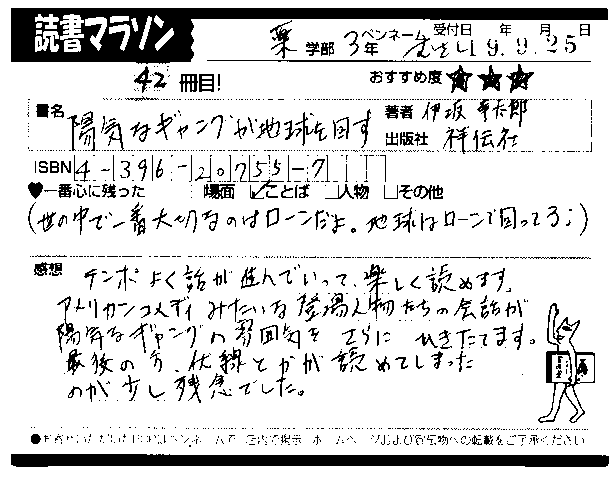 読書マラソン
薬 学部 3年 ペンネーム むさし 受付日 19年 9月 25日
42 冊目! おすすめ度 ★★★
書名 陽気なギャングが地球を回す 著者 伊坂 幸太郎
出版社 祥伝社
ISBN 4-396-20755-7
♥一番心に残った □場面 ☑ことば □人物 □その他
(世の中で一番大切なのはローンだよ。地球はローンで回ってる;)
感想 テンポよく話が進んでいって、楽しく読めます。
アメリカンコメディみたいな登場人物たちの会話が
陽気なギャングの雰囲気をさらにひきたてます。
最後の方、伏線とかが読めてしまった
のが少し残念でした。
ペンネームで 店内で掲示 ホームページおよび宣伝物への転載をご了承ください